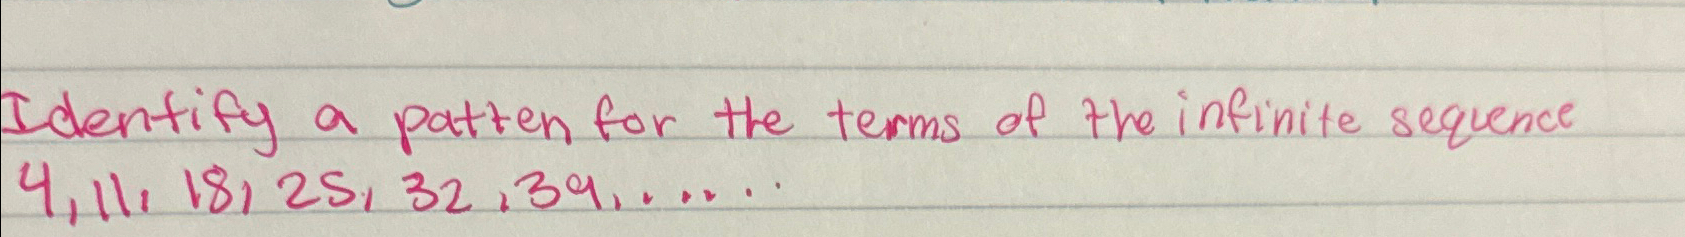 Identify a patten for the terms of the infinite sequence
4, 11, 18, 25, 32, 39, ......